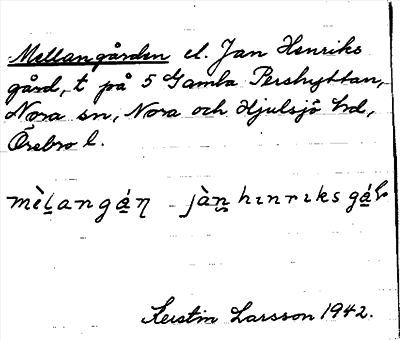 Mellangården el. Jan Henriks
gård, t på 5 Gamla Pershyttan,
Nora sn, Nora och Hjulsjö hd,
Örebro l.
mèl̠angá̠n jàn̠hınrıksgá̠ꞎ
Kerstin Larsson 1942.